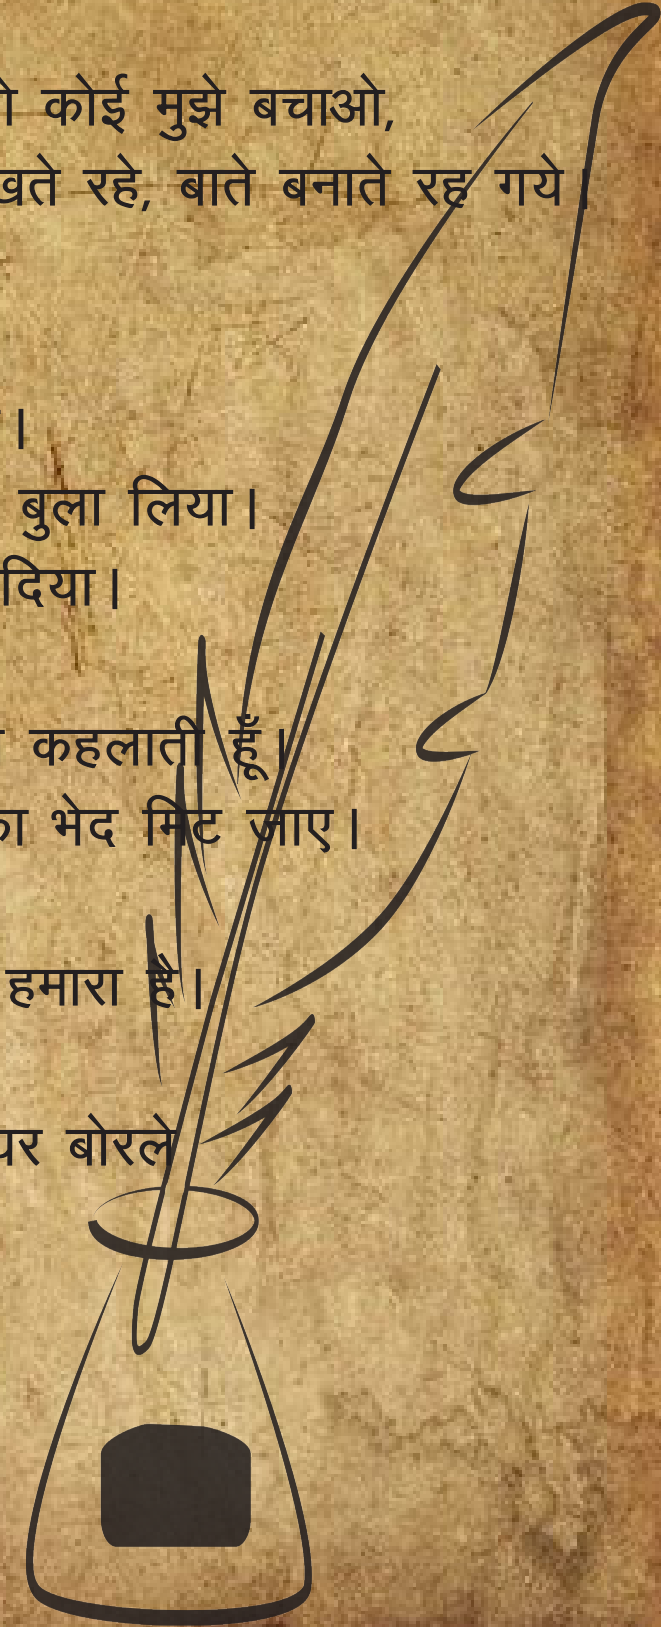 कोई मुझे बचाओ,
रहे, बाते बनाते रह गये।
।
बुला लिया।
दिया।
कहलाती हूँ।
का भेद मिट जाए।
हमारा है।
बोरले